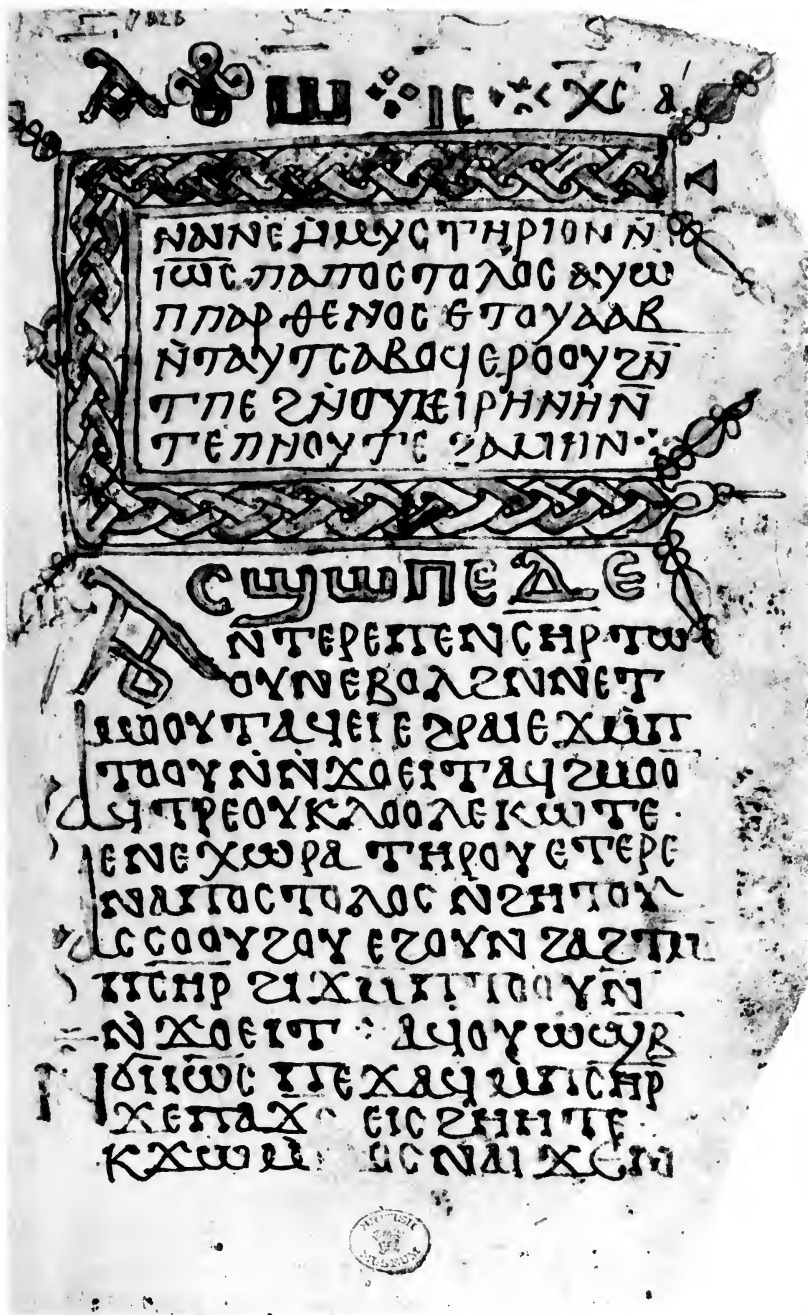 7026
Ⲁ Ⲱ ⲓⲥ ⲭⲥ ⲁ
ⲛⲁⲓⲛⲉⲙⲙⲩⲥⲧⲏⲣⲓⲟⲛⲛ̄
ⲓⲱ̅ⲥ̅ ⲡⲁⲡⲟⲥⲧⲟⲗⲟⲥ ⲁⲩⲱ
ⲡⲡⲁⲣⲑⲉⲛⲟⲥ ⲉⲧⲟⲩⲁⲁⲃ
ⲛ̄ⲧⲁⲩⲧⲥⲁⲃⲟϥ ⲉⲣⲟⲟⲩ ϩⲛ̄
ⲧⲡⲉ ϩⲛ̄ⲟⲩⲉⲓⲣⲏⲛⲏ ⲛ̄
ⲧⲉⲡⲛⲟⲩⲧⲉ ϩⲁⲙⲏⲛ
Ⲁⲥϣⲱⲡⲉⲇⲉ
ⲛⲧⲉⲣⲉⲡⲉⲛⲥⲏⲣ ⲧⲱ
ⲟⲩⲛ ⲉⲃⲟⲗ ϩⲛⲛⲉⲧ
ⲙⲟⲟⲩⲧ ⲁϥⲉⲓ ⲉϩⲣⲁⲓ ⲉϫⲙ̄ⲡ
ⲧⲟⲟⲩ ⲛ̄ⲛ̄ϫⲟⲉⲓⲧ ⲁϥϩⲙⲟⲟ
ⲁϥⲧⲣⲉⲟⲩⲕⲗⲟⲟⲗⲉ ⲕⲱⲧⲉ
ⲉⲛⲉⲭⲱⲣⲁ ⲧⲏⲣⲟⲩ ⲉⲧⲉⲣⲉ
ⲛⲁⲡⲟⲥⲧⲟⲗⲟⲥ ⲛ̄ϩⲏⲧⲟⲩ
ⲁⲥⲥⲟⲟⲩϩⲟⲩ ⲉϩⲟⲩⲛ ϩⲁϩⲧⲙ
ⲡⲥⲏⲣ ϩⲓϫⲙⲡⲧⲟⲟⲩ ⲛ
ⲛ̄ϫⲟⲉⲓⲧ ⲁϥⲟⲩⲱϣⲃ̄
ⲛϭⲓⲓⲱ̅ⲥ̅ ⲡⲉϫⲁϥ ⲙ̄ⲡⲥⲏⲣ
ϫⲉⲡⲁϫ ⲉⲓⲥϩⲏⲏⲧⲉ
ⲕϫⲱⲙ ⲟⲥ ⲛⲁⲓ ϫⲉⲛ
BRITISH
MUSEUM